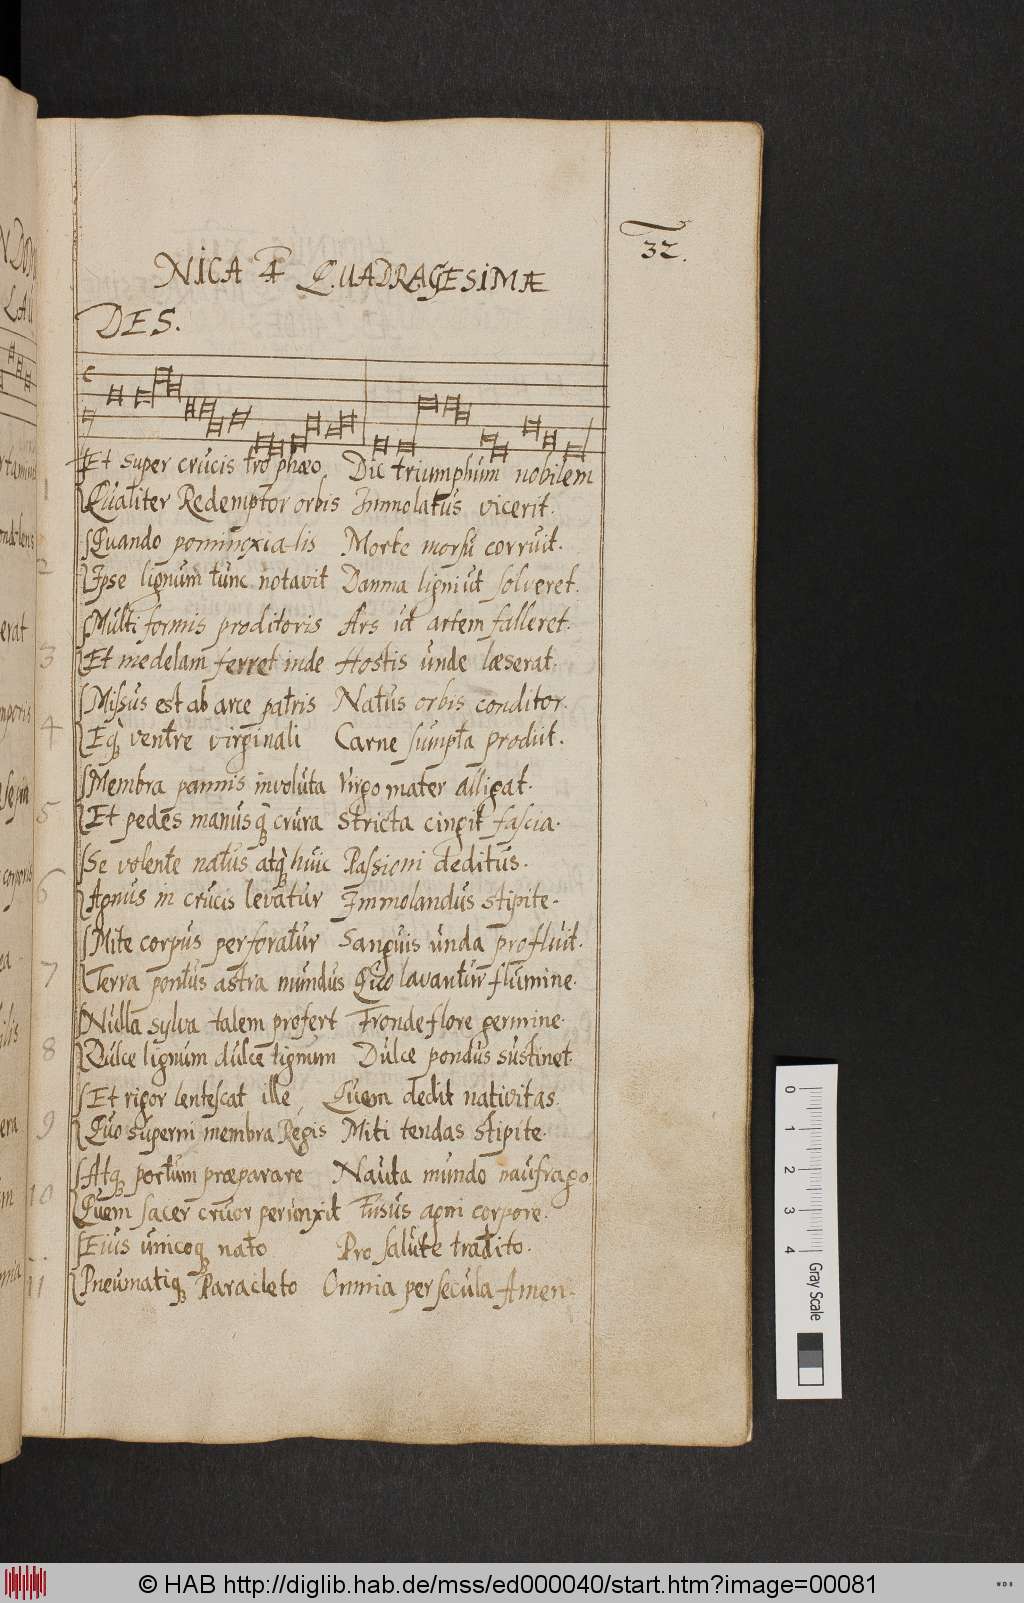 32.
NICA 4 QUADRAGESIMÆ
DES.
Et super crucis trophæo Dic triumphum nobilem
1 Qualiter Redemptor orbis Immolatus vicerit.
Quando pomi noxialis Morte morsu corruit.
2 Ipse lignum tunc notavit Damna ligni ut solveret.
Multiformis proditoris Ars ut artem falleret.
3 Et medelam ferret inde Hostis unde læserat.
Missus est ab arce patris Natus orbis conditor.
4 Eq́ ventre virginali Carne sumpta prodiit.
Membra pannis involuta Virgo mater alligat.
5 Et pedes manusq́ crura Stricta cingit fascia.
Se volente natus atq́ huic Passioni deditus.
6 Agnus in crucis levatur Immolandus stipite.
Mite corpus perforatur Sanguis unda profluit.
7 Terra pontus astra mundus Quo lavantur flumine.
Nulla sylva talem profert Fronde flore germine.
8 Dulce lignum dulce lignum Dulce pondus sustinet
Et rigor lentescat ille Quem dedit nativitas.
9 Quo superni membra Regis Miti tendas stipite.
Atq portum præparare Nauta mundo naufrago.
10 Quem sacer cruor perunxit Fusus agni corpore.
Eius unicoq nato Pro salute tradito.
11 Pneumatiq Paracleto Omnia per secula Amen.
0 1 2 3 4 Gray Scale
© HAB http://diglib.hab.de/mss/ed000040/start.htm?image=00081